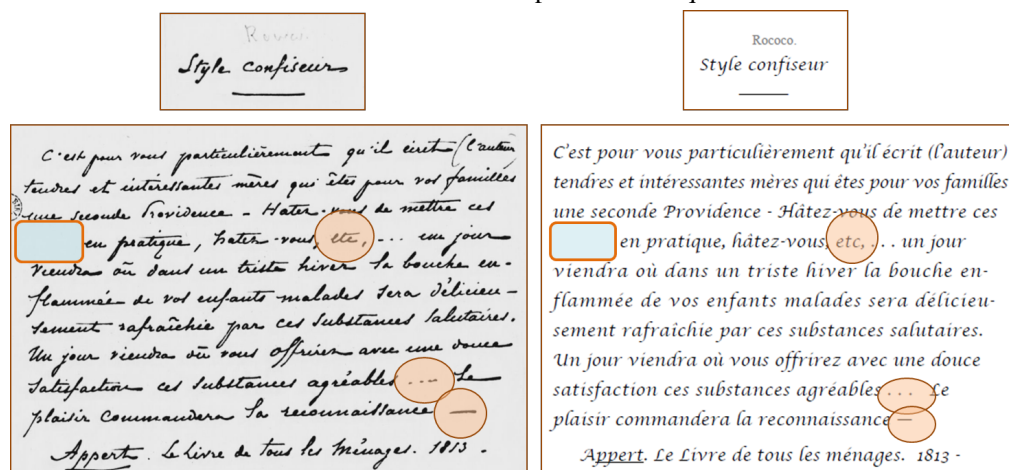 Rococo.
Style confiseur
C'est pour vous particulièrement qu'il écrit (l'auteur
tendres et intéressantes mères qui êtes pour vos familles
une seconde Providence - Hâtez-vous de mettre ces
en pratique, hâtez-vous, etc, ... un jour
viendra où dans un triste hiver la bouche en-
flammée de vos enfants malades sera délicieu-
sement rafraîchie par ces substances salutaires.
Un jour viendra où vous offrirez avec une douce
satisfaction ces substances agréables ... Le
plaisir commandera la reconnaissance —
Appert. Le Livre de tous les Ménages. 1813 -
Rococo.
Style confiseur
C'est pour vous particulièrement qu'il écrit (l'auteur)
tendres et intéressantes mères qui êtes pour vos familles
une seconde Providence - Hâtez-vous de mettre ces
en pratique, hâtez-vous, etc, . . . un jour
viendra où dans un triste hiver la bouche en-
flammée de vos enfants malades sera délicieu-
sement rafraîchie par ces substances salutaires.
Un jour viendra où vous offrirez avec une douce
satisfaction ces substances agréables . . . Le
plaisir commandera la reconnaissance —
Appert. Le Livre de tous les ménages. 1813 -